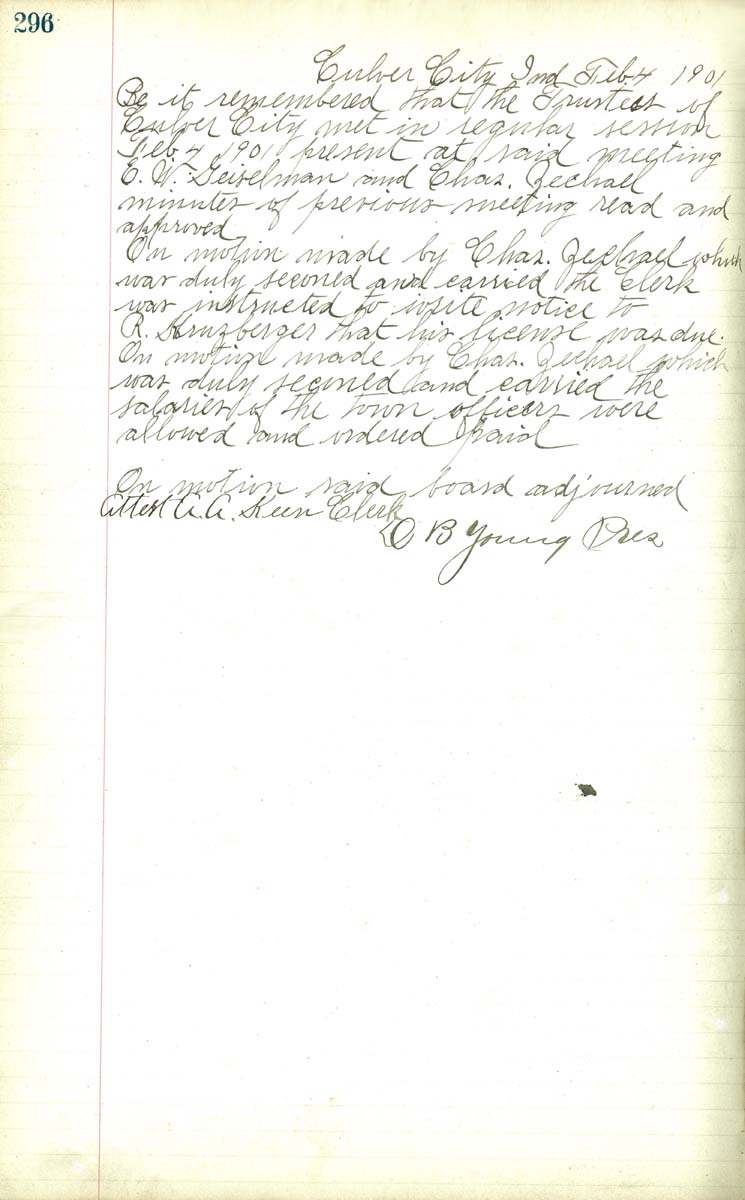 296
Culver City Ind Feb 4 1901
Be it remembered that the Trustees of
Culver City met in regular session
Feb. 4 1901 present at said meeting
E. W. Geiselman and Chas. Zechael
minutes of previous meeting read and
approved
On motion made by Chas. Zechael which
was duly seconed and carried the Clerk
was instructed to write notice to
R. Kruzberger that his license was due.
On motion made by Chas. Zechael which
was duly seconed and carried the
salaries of the town officers were
allowed and ordered paid
On motion said board adjourned
Attest A. A. Keen Clerk
O B Young Pres